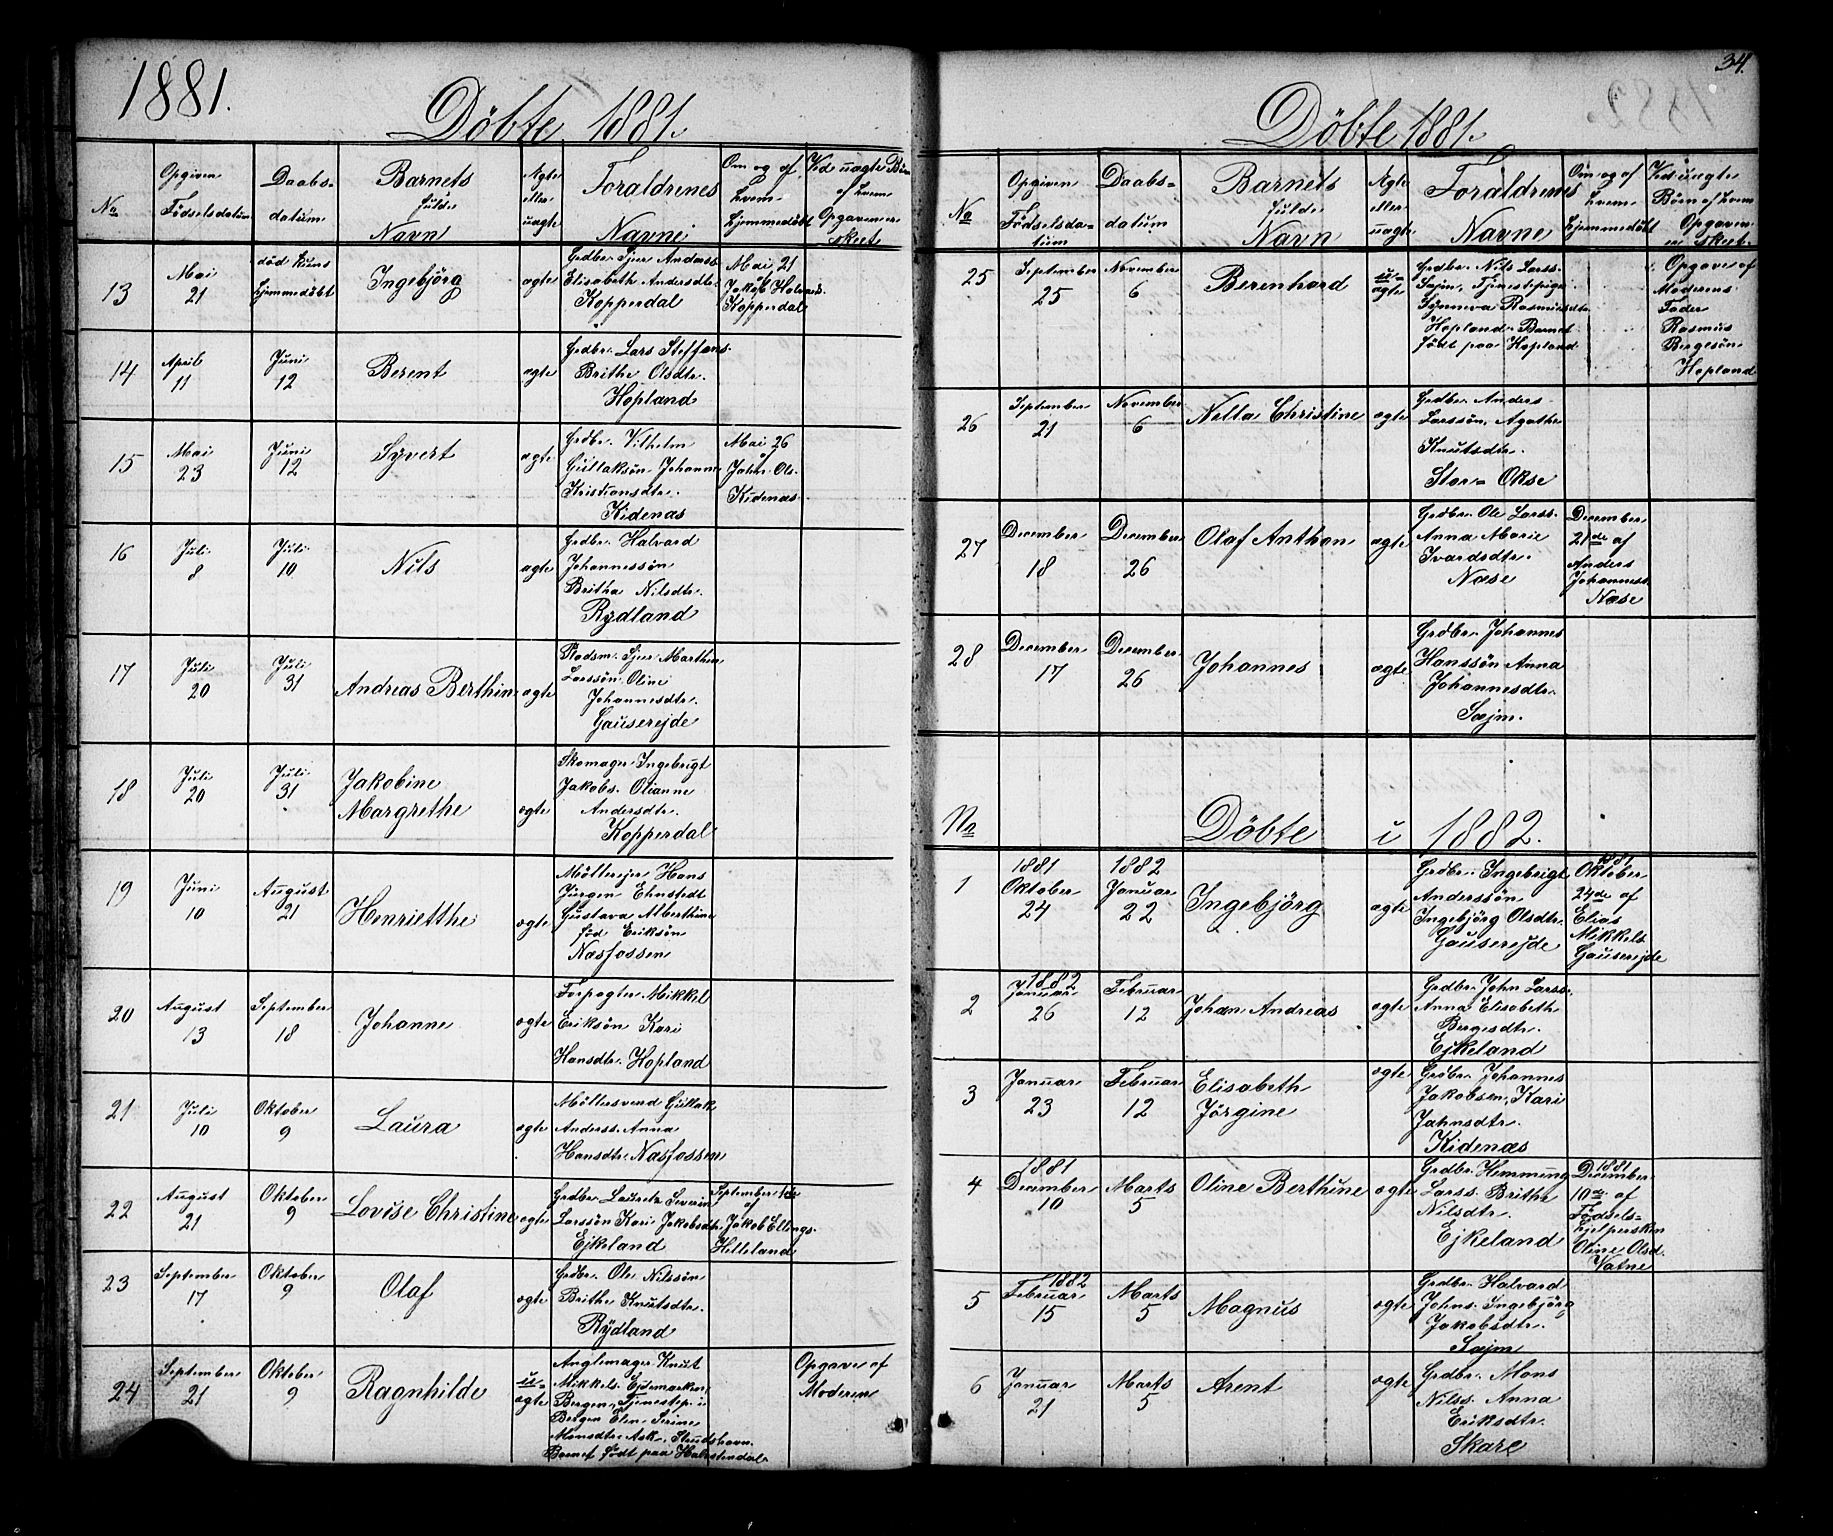 1881.
Döbte 1881.
No
Opgiven
Fødselsdatum
Daabs-
datum
Barnets
fulde
Navn
Ægte
eller
uægte
Foraldrenes
Navne
Om og af
hvem
hjemmedøbt
Ved uagte Børn
af hvem
Opgaven er
skeet
13
Mai
21
død kuns
hjemmedöbt
Ingebjörg
agte
Grdbr. Sjur Anderss.
Elisabeth Andersdtr.
Kopperdal
Mai 21
Jakob Halvards.
Kopperdal
14
April
11
Juni
12
Berent
agte
Grdbr. Lars Steffens.
Brithe Olsdtr.
Hopland
15
Mai
23
Juni
12
Syvert
agte
Grdbr. Vilhelm
Gullaksön Johanne
Kristiansdtr.
Kidenæs
Mai 26
af
John Ols.
Kidenæs
16
Juli
8
Juli
10
Nils
agte
Grdbr. Halvard
Johannessön
Britha Nilsdtr.
Rydland
17
Juli
20
Juli
31
Andreas Berthin
agte
Pladsm. Sjur Marthin
Larssön Oline
Johannesdtr.
Gauserejde
18
Juli
20
Juli
31
Jakobine
Margrethe
agte
Skomager Ingebrigt
Jakobs. Olianne
Andersdtr.
Kopperdal
19
Juni
10
August
21
Henrietthe
agte
Möllerejer Hans
Jürgen Ehnstedt
Gustava Alberthine
föd Eriksön
Næsfossen
20
August
13
September
18
Johanne
agte
Forpagter Mikkel
Eriksön Kari
Hansdtr. Hopland
21
Juli
10
Oktober
9
Laura
agte
Möllersvend Gullak
Anderss. Anna
Hansdtr. Næsfossen
22
August
21
Oktober
9
Lovise Christine
agte
Grdbr. Lauretz Severin
Larssön Kari Jakobsdtr.
Ejkeland
September 1ste
af
Jakob Ellings.
Helleland
23
September
17
Oktober
9
Olaf
agte
Grdbr. Ole Nilssön
Brithe Knutsdtr.
Rydland
24
September
21
Oktober
9
Ragnhilde
u-
agte
Anglemager Knut
Mikkels. Ejdemarken,
Bergen, Tjenestep. i
Bergen Elen Serine
Monsdtr. Ask, Strudshavn.
Barnet födt paa Halvstendal
Opgave af
Moderen
34.
Döbte 1881.
No
Opgiven
Fødselsda-
tum
Daabs-
datum
Barnets
fulde
Navn
Ægte
eller
uagte
Foraldrenes
Navne
Om og af
hvem
hjemmedöbt
Ved uagte
Børn af hvem
Opgaven
er skeet.
25
September
25
November
6
Berenhard
u-
agte
Grdbr. Nils Larss.
Sæjm, Tjenestepige
Synneva Rasmusdtr.
Hopland. Barnet
födt paa Hopland
Opgave af
Moderens
Fader
Rasmus
Bergesön
Hopland
26
September
21
November
6
Nella Christine
agte
Grdbr. Anders
Larssön, Agathe
Knutsdtr.
Stor-Okse
27
December
18
December
26
Olaf Anthon
agte
Grdbr. Ole Larss.
Anna Marie
Ivarsdtr.
Næse
December
21de af
Anders
Johanness.
Næse
28
December
17
December
26
Johannes
agte
Grdbr. Johannes
Hanssön Anna
Johannesdtr.
Sæjm.
No
Döbte i 1882.
1
1881
Oktober
24
1882
Januar
22
Ingebjörg
agte
Grdbr. Ingebrigt
Anderssön
Ingebjörg Olsdtr.
Gauserejde
1881
Oktober
24de af
Elias
Mikkels.
Gauserejde
2
1882
Januar
26
Februar
12
Johan Andreas
agte
Grdbr. John Larss.
Anna Elisabeth
Bergesdtr.
Ejkeland
3
Januar
23
Februar
12
Elisabeth
Jörgine
agte
Grdbr. Johannes
Jakobsen, Kari
Johnsdtr.
Kidenæs
4
1881
December
10
Marts
5
Oline Berthine
agte
Grdbr. Hemming
Larss. Brithe
Nilsdtr.
Ejkeland
1881
December
10de af
Födsels-
hjelpersken
Oline Olsd.
Vatne
5
1882
Februar
15
Marts
5
Magnus
agte
Grdbr. Halvard
Johns. Ingebjörg
Jakobsdtr.
Sæjm
6
Januar
21
Marts
5
Arent
agte
Grdbr. Mons
Nilss. Anna
Eriksdtr.
Skare